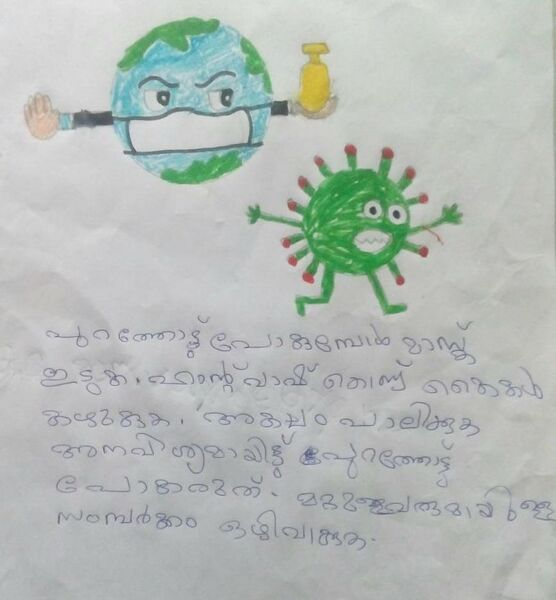 പുറത്തോട്ട് പോകുമ്പോൾ മാസ്ക്ക്
ഇടുക. ഹാന്റ് വാഷ് കൊണ്ട് കൈകൾ
കഴുകുക. അകലം പാലിക്കുക
അനവിശ്യമായിട്ട് പുറത്തോട്ട്
പോകരുത്. മറ്റുള്ളവരുമായിട്ടുള്ള
സമ്പർക്കം ഒഴിവാക്കുക.